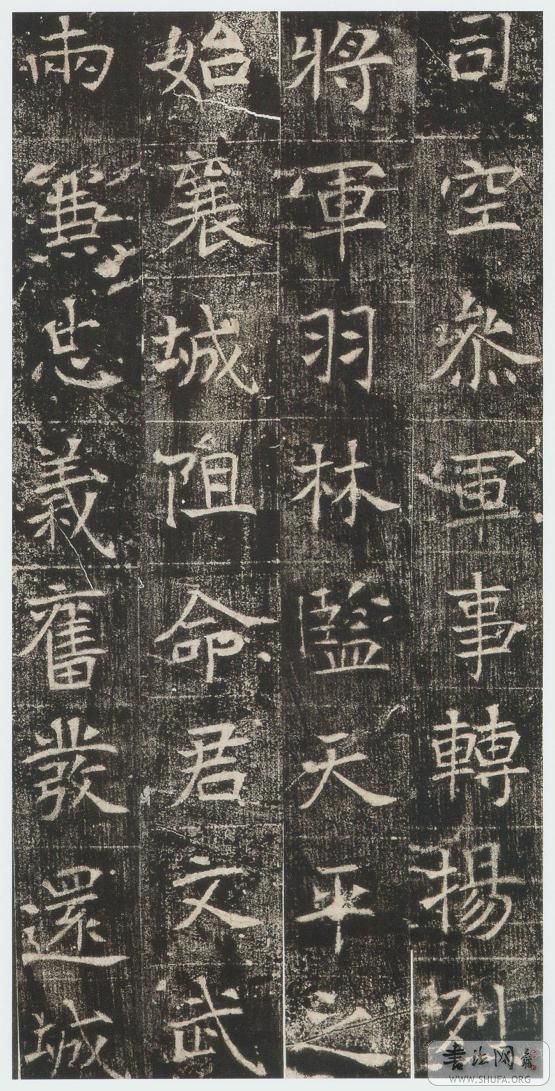 司空叅軍事轉揚列
將軍羽林監天平之
始襄城阻命君文武
兩兼忠義奮發還城
書法网
WWW.SHUFA.ORG